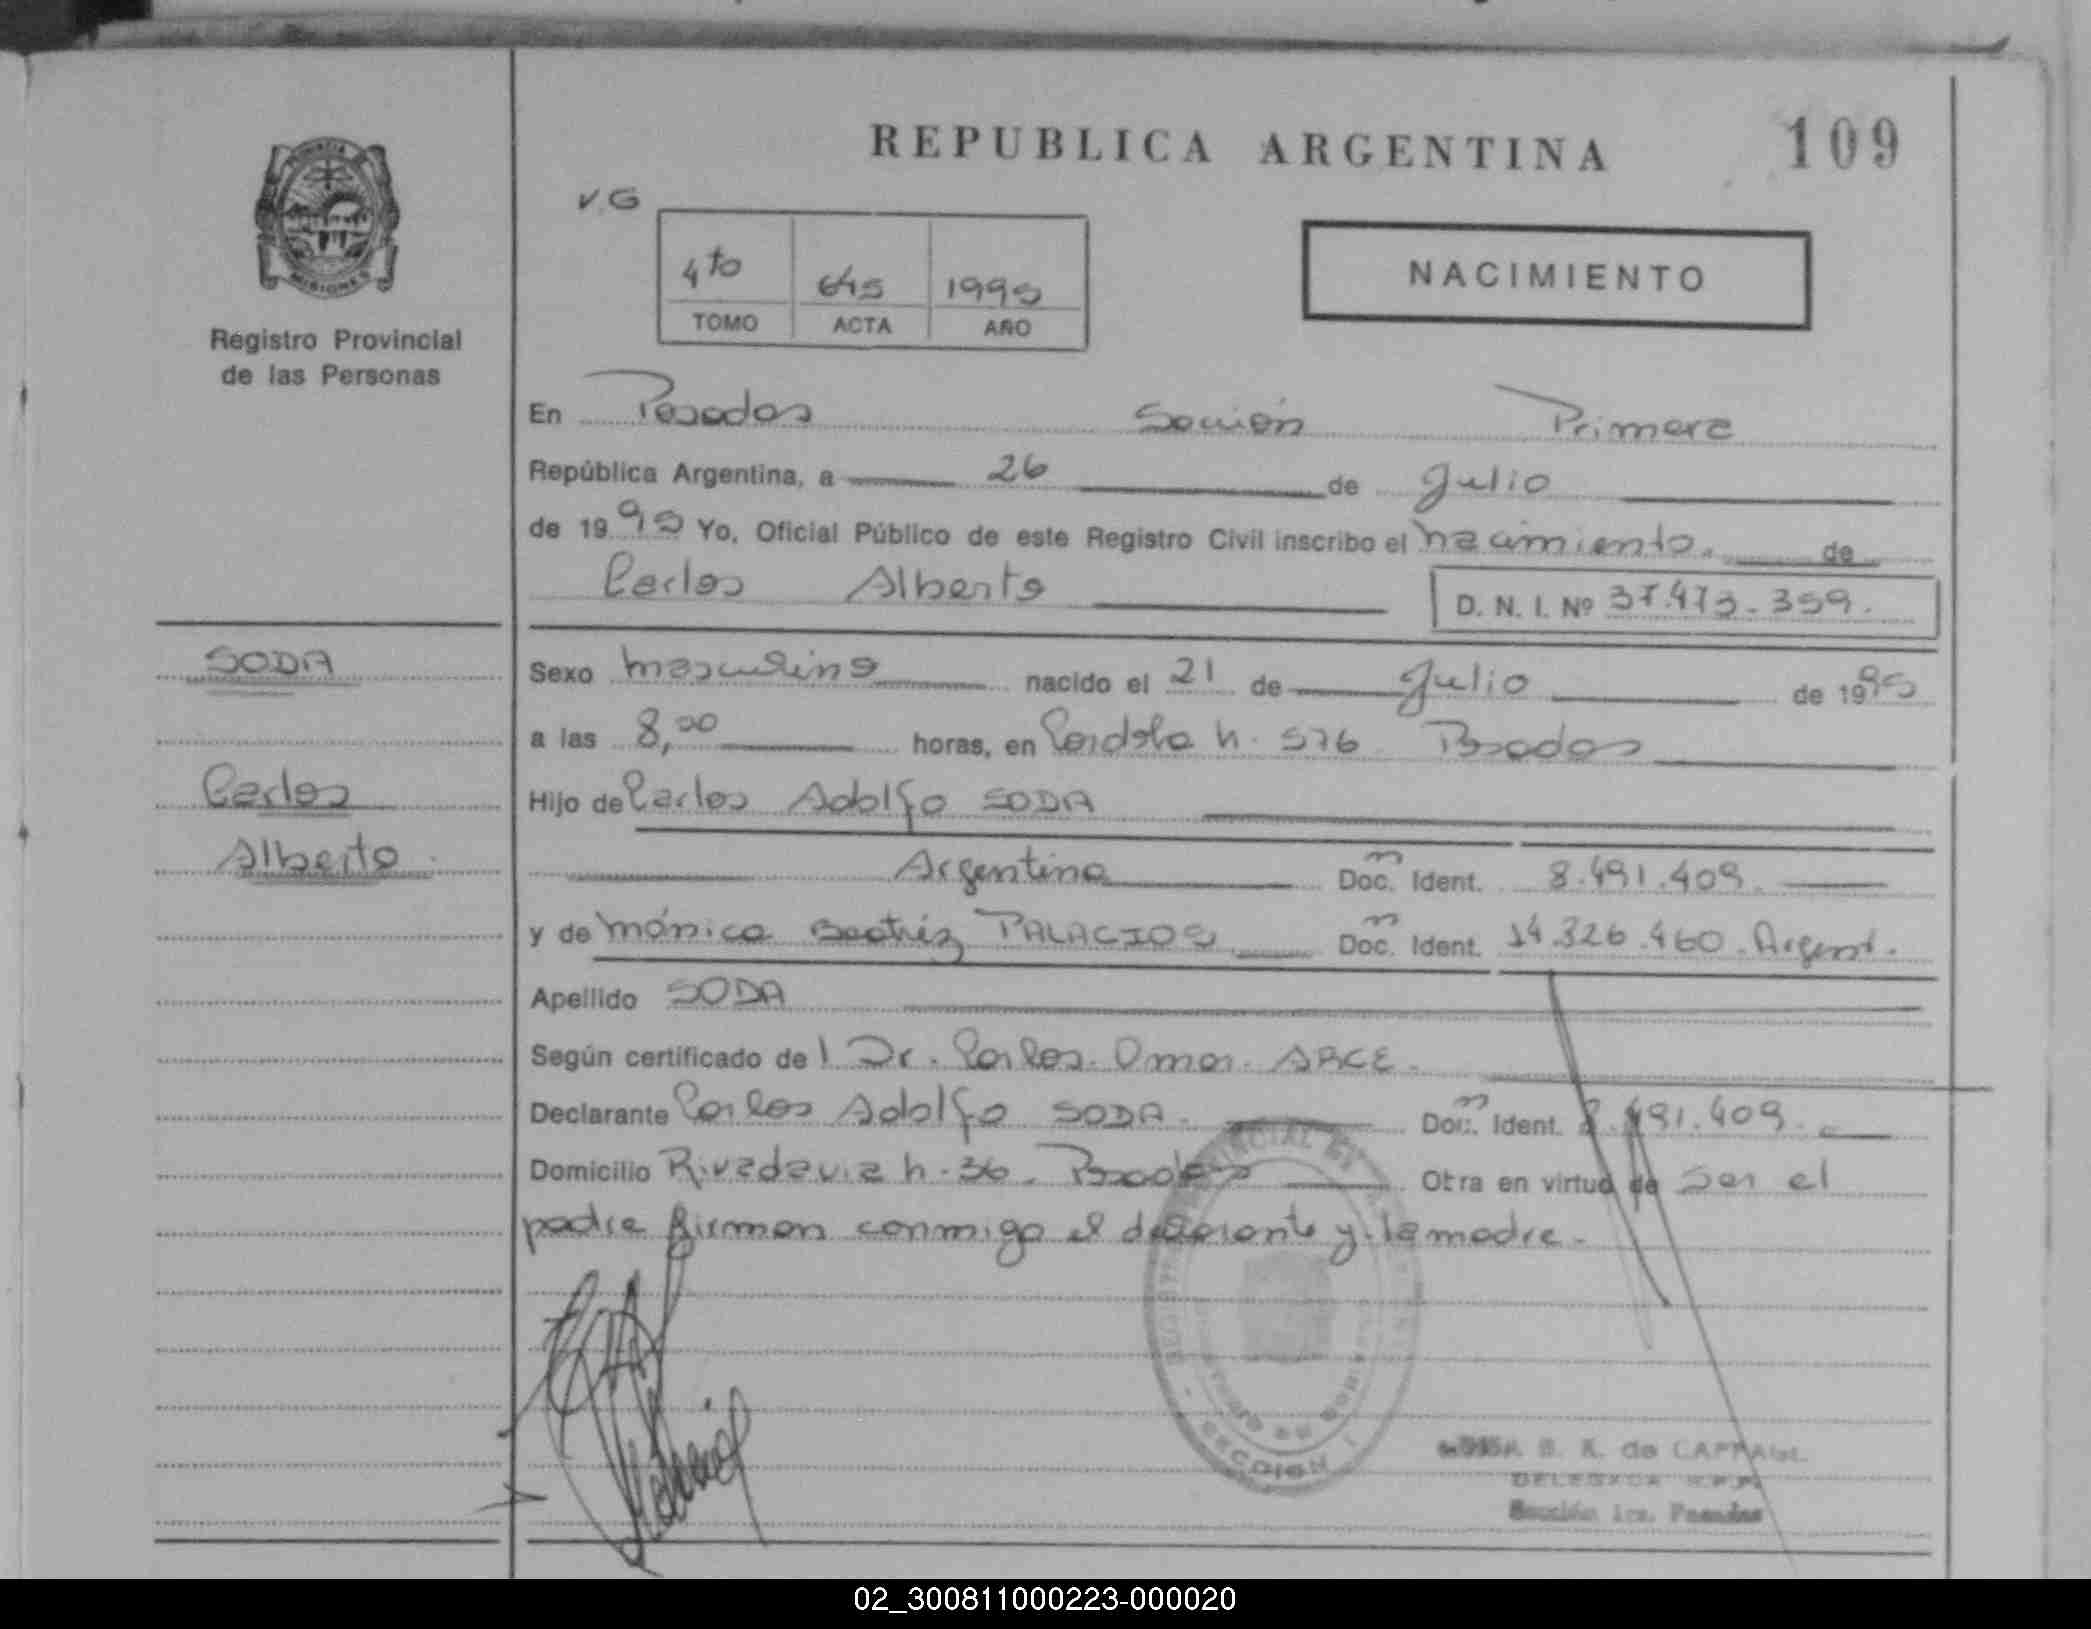 REPUBLICA ARGENTINA
109
PROVINCIA DE
MISIONES
Registro Provincial
de las Personas
V.G
4to
645
1995
TOMO
ACTA
AÑO
NACIMIENTO
En Posadas Sección Primera
República Argentina, a 26 de Julio
de 1995 Yo, Oficial Público de este Registro Civil inscribo el nacimiento. de
Carlos Alberto
D. N. I. Nº 37.473.359.
SODA
Carlos
Alberto.
Sexo masculino nacido el 21 de Julio de 1995
a las 8,00 horas, en Córdoba n. 576 Posadas
Hijo de Carlos Adolfo SODA
Argentina Doc. m Ident. 8.491.409.
y de Mónica Beatriz PALACIOS Doc. m Ident. 14.326.460. Argent.
Apellido SODA
Según certificado de l Dr. Carlos. Omar. ARCE.
Declarante Carlos Adolfo SODA. Doc. m Ident. 8.491.409.
Domicilio Rivadavia n. 36. Posadas Otra en virtud de ser el
padre firman conmigo el declarante y la madre.
SECCION I
B. K. de
DELEGADA R.P.P.
Sección 1ra. Posadas
02_300811000223-000020